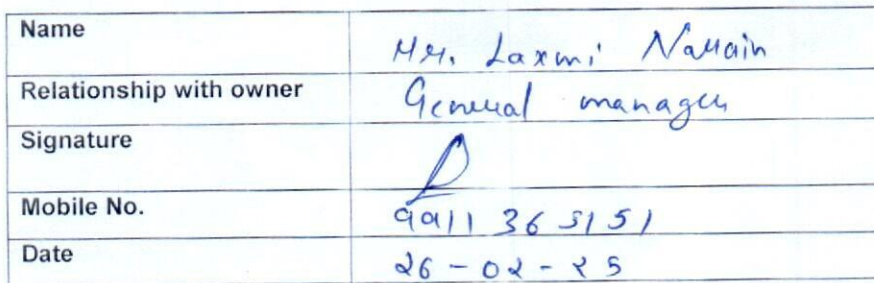 Name Mr. Laxmi Narain
Relationship with owner General manager
Signature
Mobile No. 9911 365151
Date 26-02-25